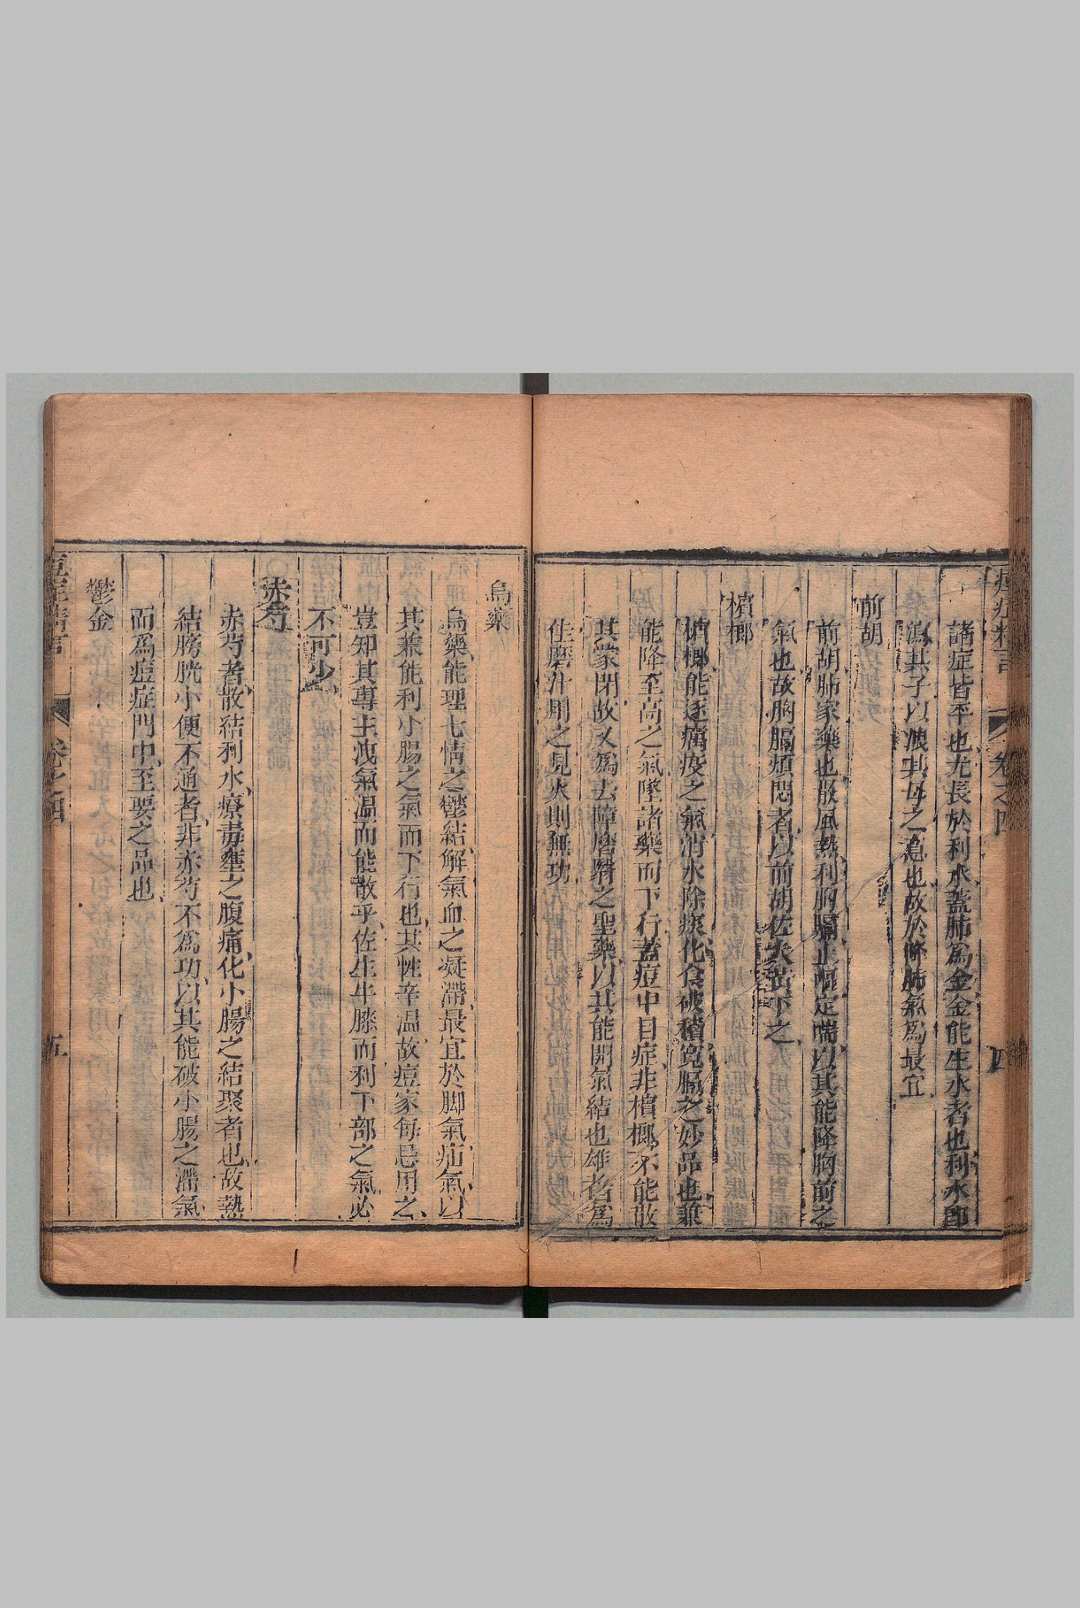 痘症精言 卷之四 四
諸症皆平也尤長於利水蓋肺為金金能生水者也利水即
瀉其子以泄其母之意也故於降肺氣為最宜
前胡
前胡肺家藥也散風熱利胸膈止嘔定喘以其能降胸前之
氣也故胸膈煩悶者以前胡佐大黃下之
檳榔
檳榔能逐瘟疫之氣消水除痰化食破積寬膈之妙品也兼
能降至高之氣墜諸藥而下行蓋痘中目症非檳榔不能散
其蒙閉故又為去障磨翳之聖藥以其能開氣結也雄者為
佳磨汁用之見火則無功
烏藥
烏藥能理七情之鬱結解氣血之凝滯最宜於脚氣疝氣以
其兼能利小腸之氣而下行也其性辛溫故痘家每忌用之
豈知其專主洩氣溫而能散乎佐生牛膝而利下部之氣必
不可少
赤芍
赤芍者散結利水療毒壅之腹痛化小腸之結聚者也故熱
結膀胱小便不通者非赤芍不為功以其能破小腸之滯氣
而為痘症門中至要之品也
鬱金
痘症精言 卷之四 五